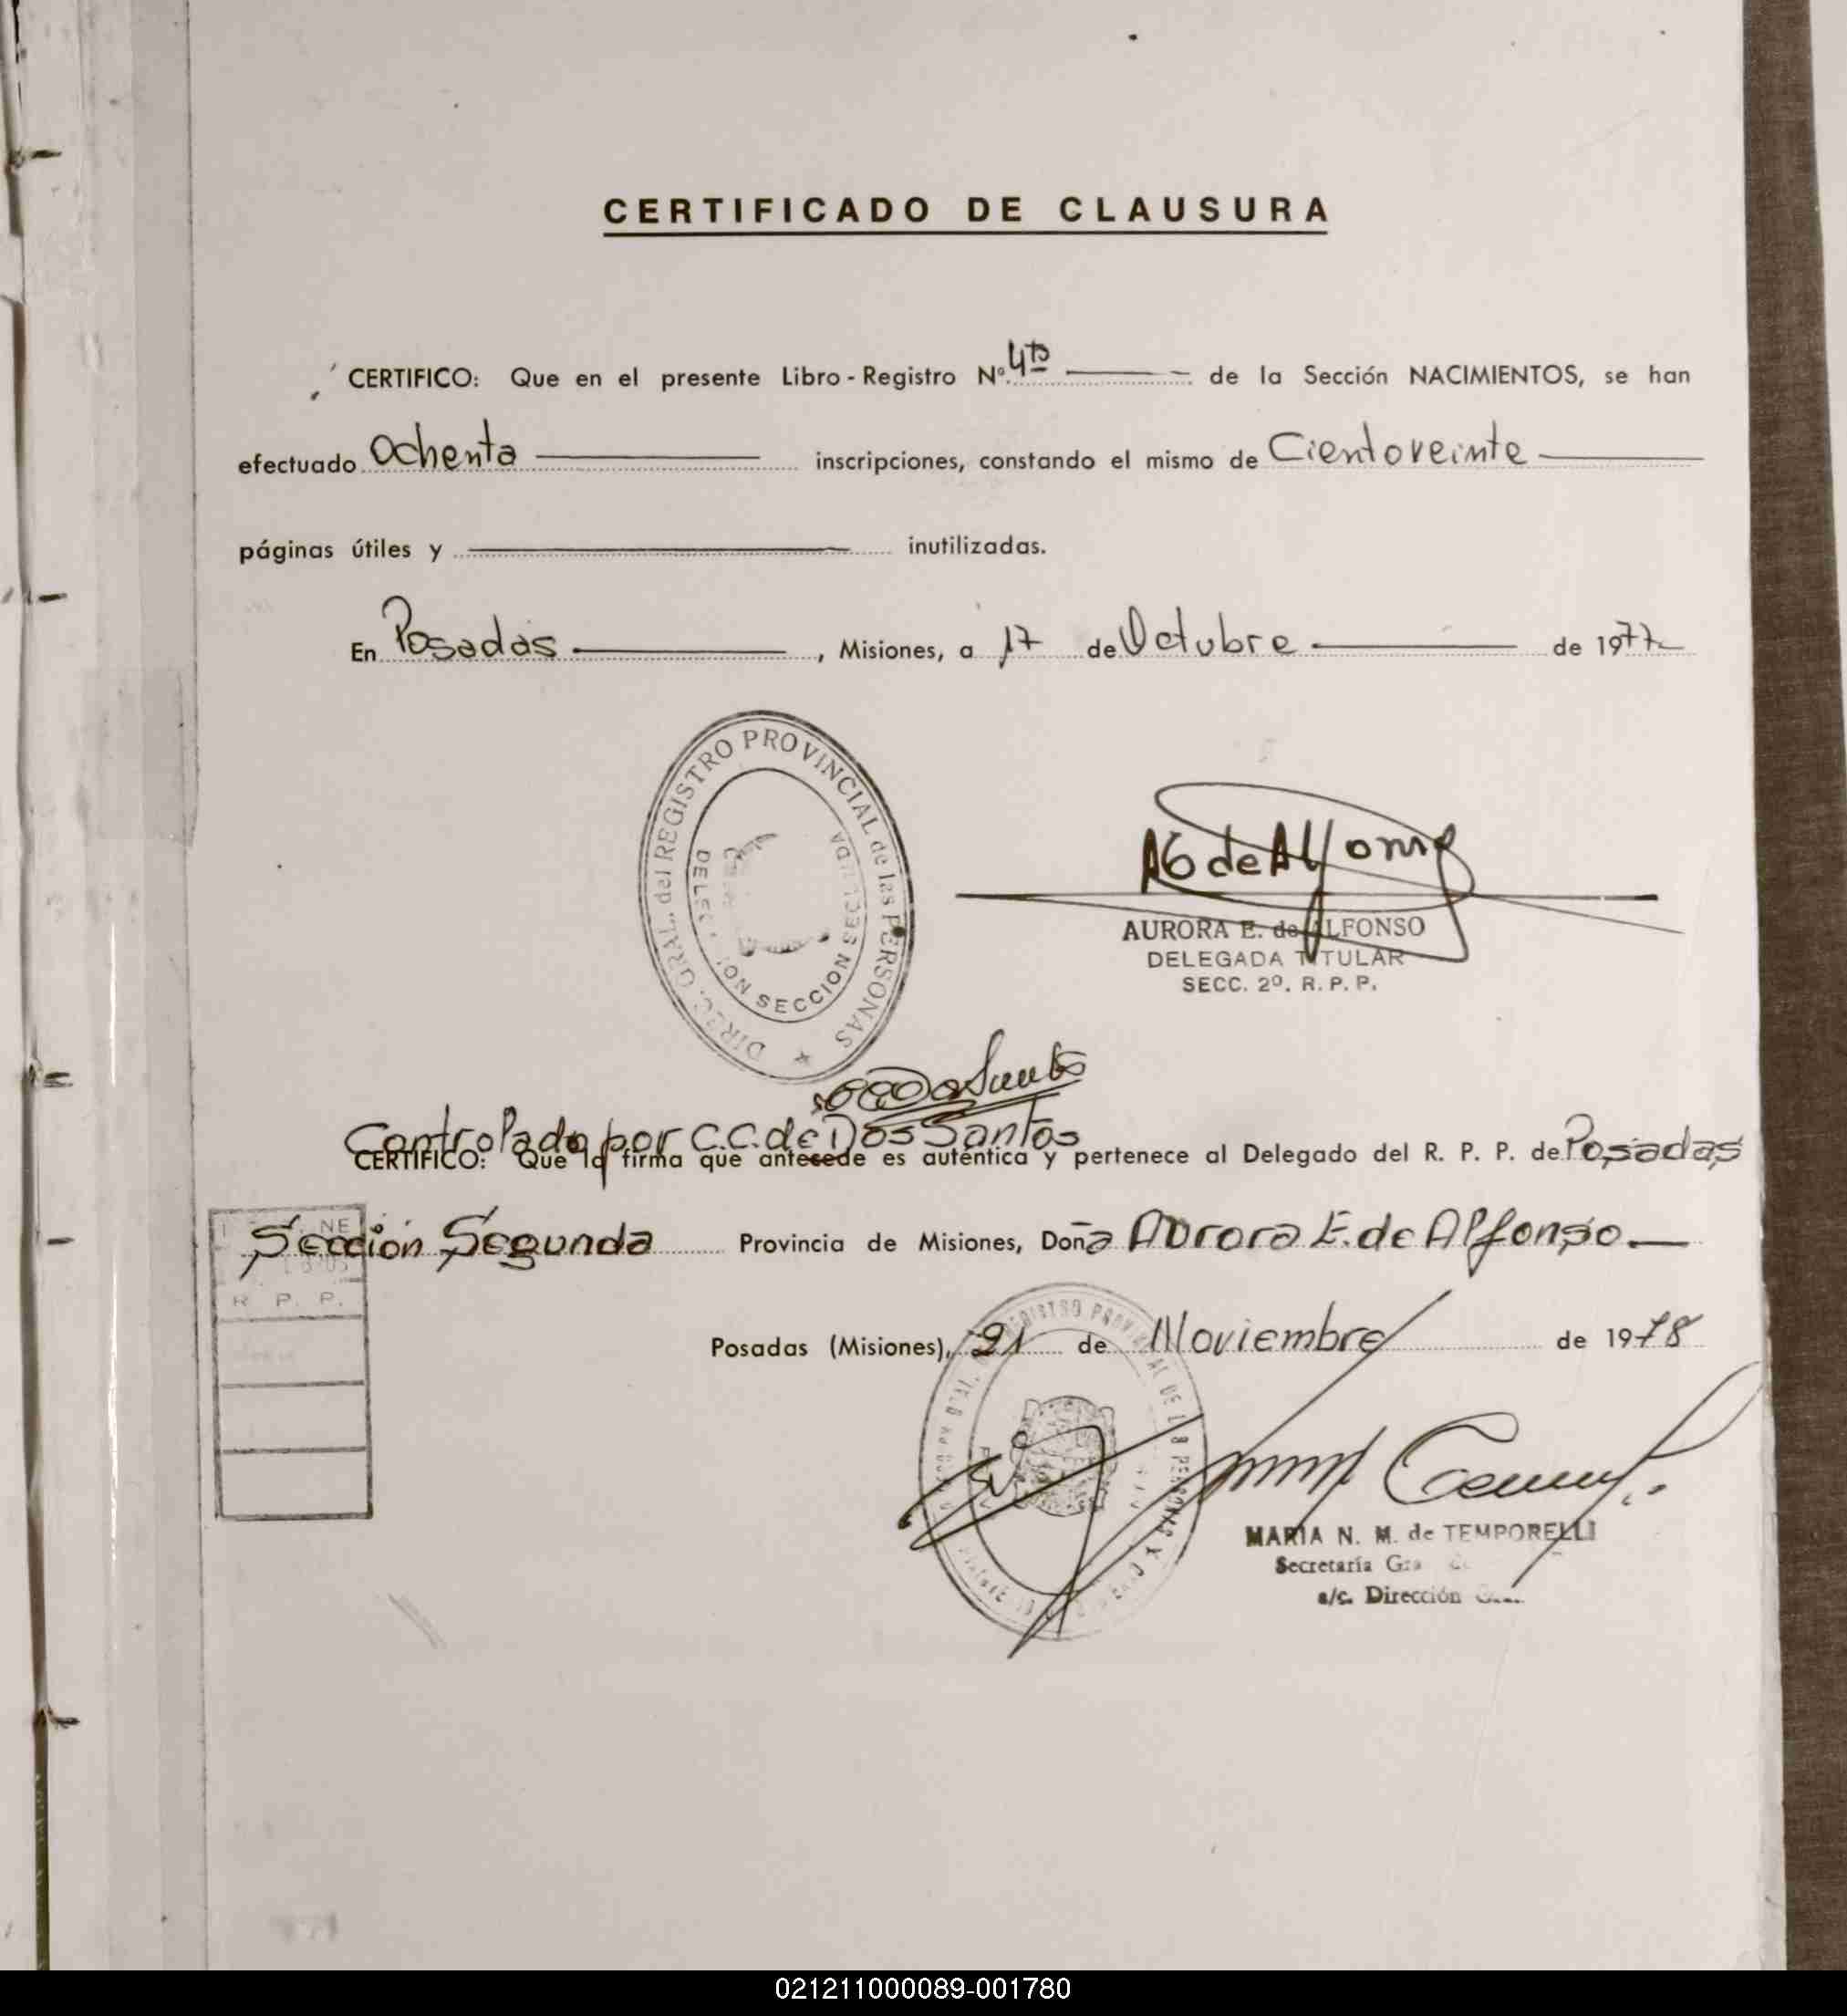 CERTIFICADO DE CLAUSURA
CERTIFICO: Que en el presente Libro - Registro Nº. 4to de la Sección NACIMIENTOS, se han
efectuado Ochenta inscripciones, constando el mismo de Cientoveinte
páginas útiles y inutilizadas.
En Posadas, Misiones, a 17 de Octubre de 1977
DIREC. GRAL. del REGISTRO PROVINCIAL de las PERSONAS
SECCION SEGUNDA
AG de Alfonso
AURORA E. de ALFONSO
DELEGADA TITULAR
SECC. 2º. R. P. P.
Controlado por C.C. de Dos Santos
CERTIFICO: Que la firma que antecede es auténtica y pertenece al Delegado del R. P. P. de Posadas
Sección Segunda Provincia de Misiones, Doña Aurora E. de Alfonso.
R. P. P.
Posadas (Misiones), 21 de Noviembre de 1978
MARIA N. M. de TEMPORELLI
Secretaría
a/c. Dirección
021211000089-001780